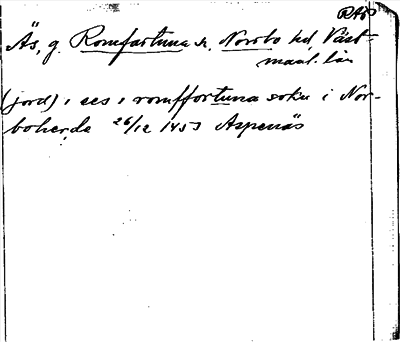 RAp
Äs, g. Romfartuna sn. Norrbo hd, Väst-
manl. län
(jord) i ees i romffortuna sokn i Nor-
boherde 26/12 1453 Aspenäs